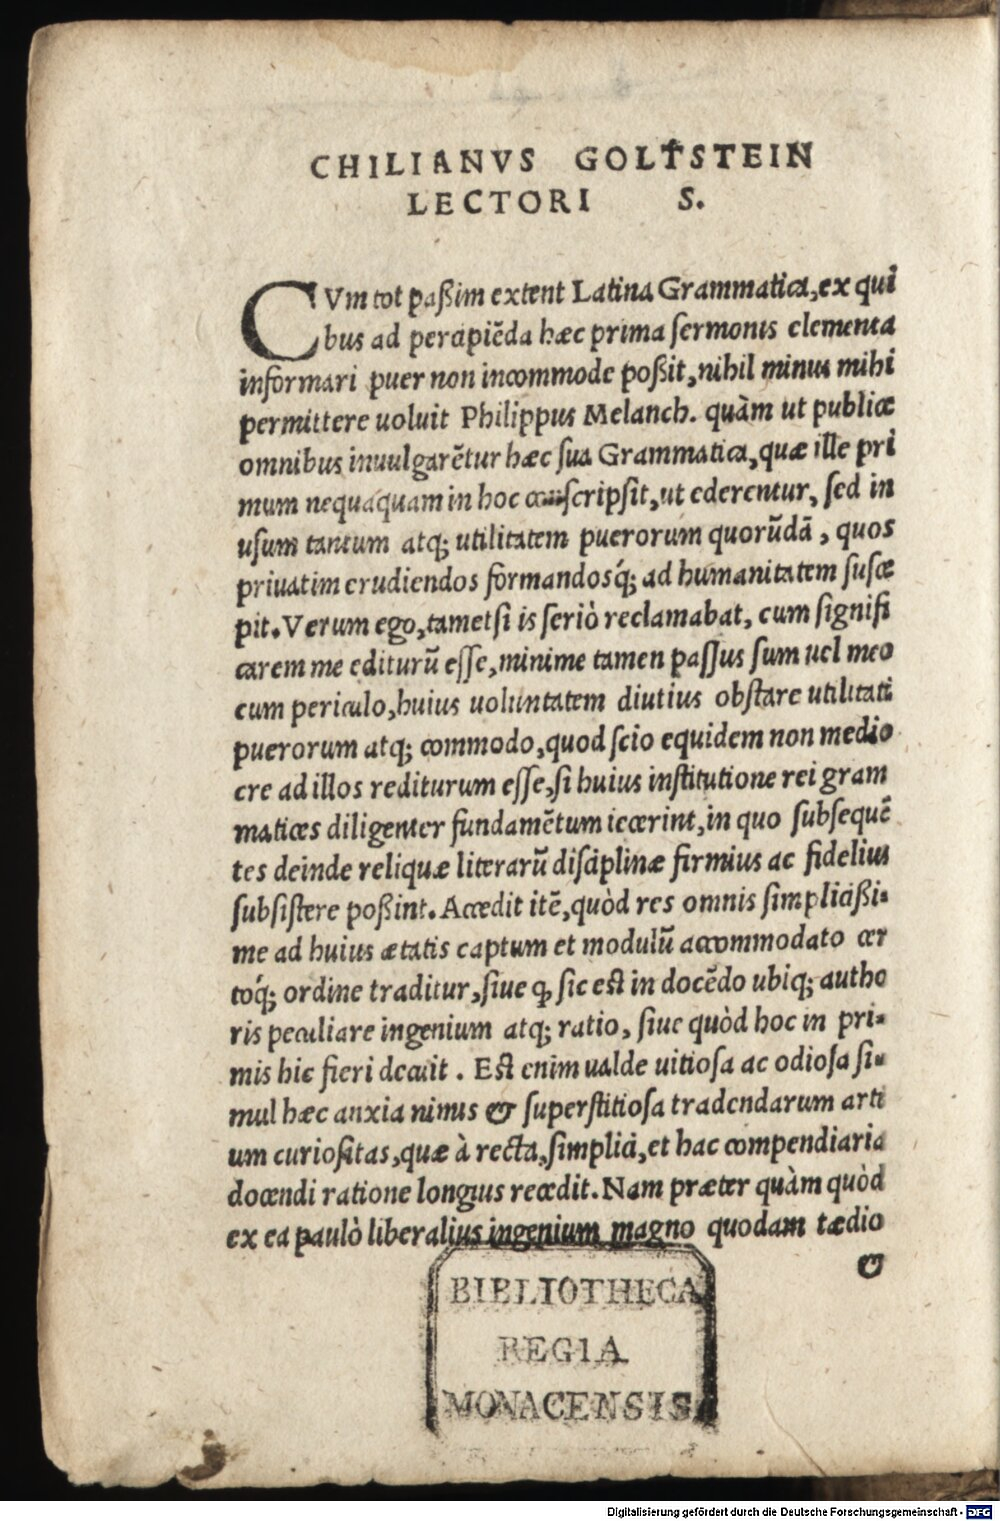 CHILIANVS GOLTSTEIN
LECTORI S.
CVm tot paßim extent Latina Grammatica, ex qui
bus ad percipiẽda hæc prima ſermonis elementa
informari puer non incommode poßit, nihil minus mihi
permittere uoluit Philippus Melanch. quàm ut publice
omnibus inuulgarẽtur hæc ſua Grammatica, quæ ille pri
mum nequaquam in hoc conſcripſit, ut ederentur, ſed in
uſum tantum atq; utilitatem puerorum quorũdã, quos
priuatim erudiendos formandosq́; ad humanitatem ſusce
pit. Verum ego, tametſi is ſeriò reclamabat, cum ſignifi
carem me editurũ eſſe, minime tamen paſſus ſum uel meo
cum periculo, huius uoluntatem diutius obſtare utilitati
puerorum atq; commodo, quod ſcio equidem non medio
cre ad illos rediturum eſſe, ſi huius inſtitutione rei gram
matices diligenter fundamẽtum iecerint, in quo ſubſequẽ
tes deinde reliquæ literarũ diſciplinæ firmius ac fidelius
ſubſiſtere poßint. Accedit itẽ, quòd res omnis ſimplicißi-
me ad huius ætatis captum et modulũ accommodato cer
toq́; ordine traditur, ſiue ꝙ ſic eſt in docẽdo ubiq; autho
ris peculiare ingenium atq; ratio, ſiue quòd hoc in pri-
mis hic fieri decuit. Eſt enim ualde uitioſa ac odioſa ſi-
mul hæc anxia nimis & ſuperſtitioſa tradendarum arti
um curioſitas, quæ à recta, ſimplici, et hac compendiaria
docendi ratione longius recedit. Nam præter quàm quòd
ex ea paulò liberalius ingenium magno quodam tædio
&
BIBLIOTHECA
REGIA
MONACENSIS
Digitalisierung gefördert durch die Deutsche Forschungsgemeinschaft - DFG